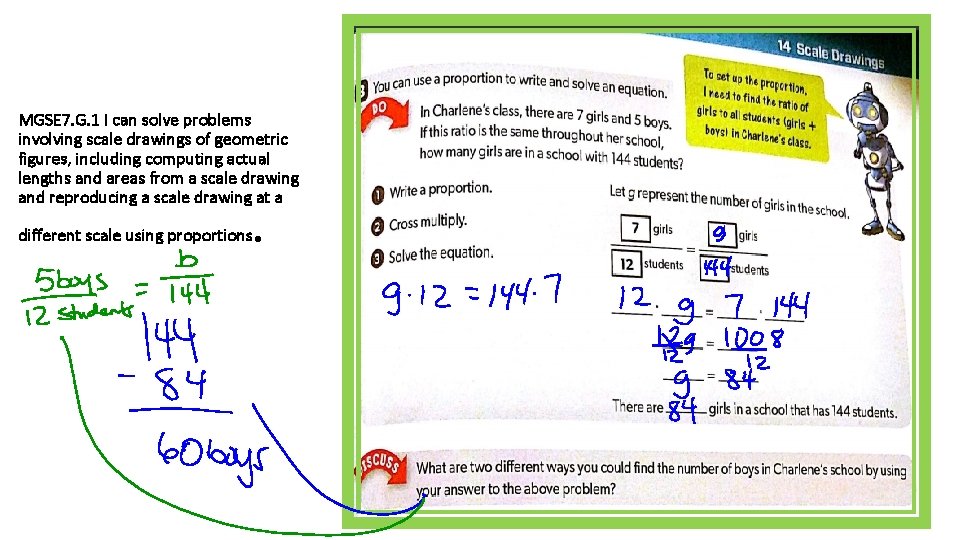 MGSE7.G.1 I can solve problems
involving scale drawings of geometric
figures, including computing actual
lengths and areas from a scale drawing
and reproducing a scale drawing at a
different scale using proportions.
5 boys = b
12 students 144
144
- 84
60 boys
14 Scale Drawings
You can use a proportion to write and solve an equation.
DO
In Charlene's class, there are 7 girls and 5 boys.
If this ratio is the same throughout her school,
how many girls are in a school with 144 students?
To set up the proportion,
I need to find the ratio of
girls to all students (girls +
boys) in Charlene's class.
1 Write a proportion.
2 Cross multiply.
3 Solve the equation.
g · 12 = 144 · 7
Let g represent the number of girls in the school.
7 girls = g girls
12 students 144 students
12 · g = 7 · 144
12g = 1008
12 12
g = 84
There are 84 girls in a school that has 144 students.
SCUSS
What are two different ways you could find the number of boys in Charlene's school by using
your answer to the above problem?